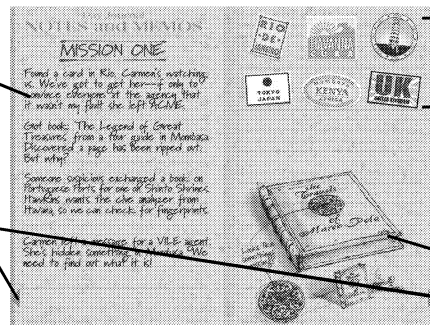 NOTES and MEMOS
MISSION ONE
Found a card in Rio. Carmen's watching
us. We've got to get her—if only to
convince everyone at the agency that
it wasn't my fault she left ACME.
Got book: The Legend of Great
Treasures from a tour guide in Mombasa.
Discovered a page has been ripped out.
But why?
Someone suspicious exchanged a book on
Portuguese Ports for one on Shinto Shrines.
Hawkins wants the clue analyzer from
Havana, so we can check for fingerprints.
Carmen left a message for a VILE agent.
She's hidden something in Mombasa. We
need to find out what it is!
RIO
DE
JANEIRO
TOKYO
JAPAN
KENYA
AFRICA
UK
UNITED KINGDOM
the
Travels
of
Marco Polo
Looks like
something